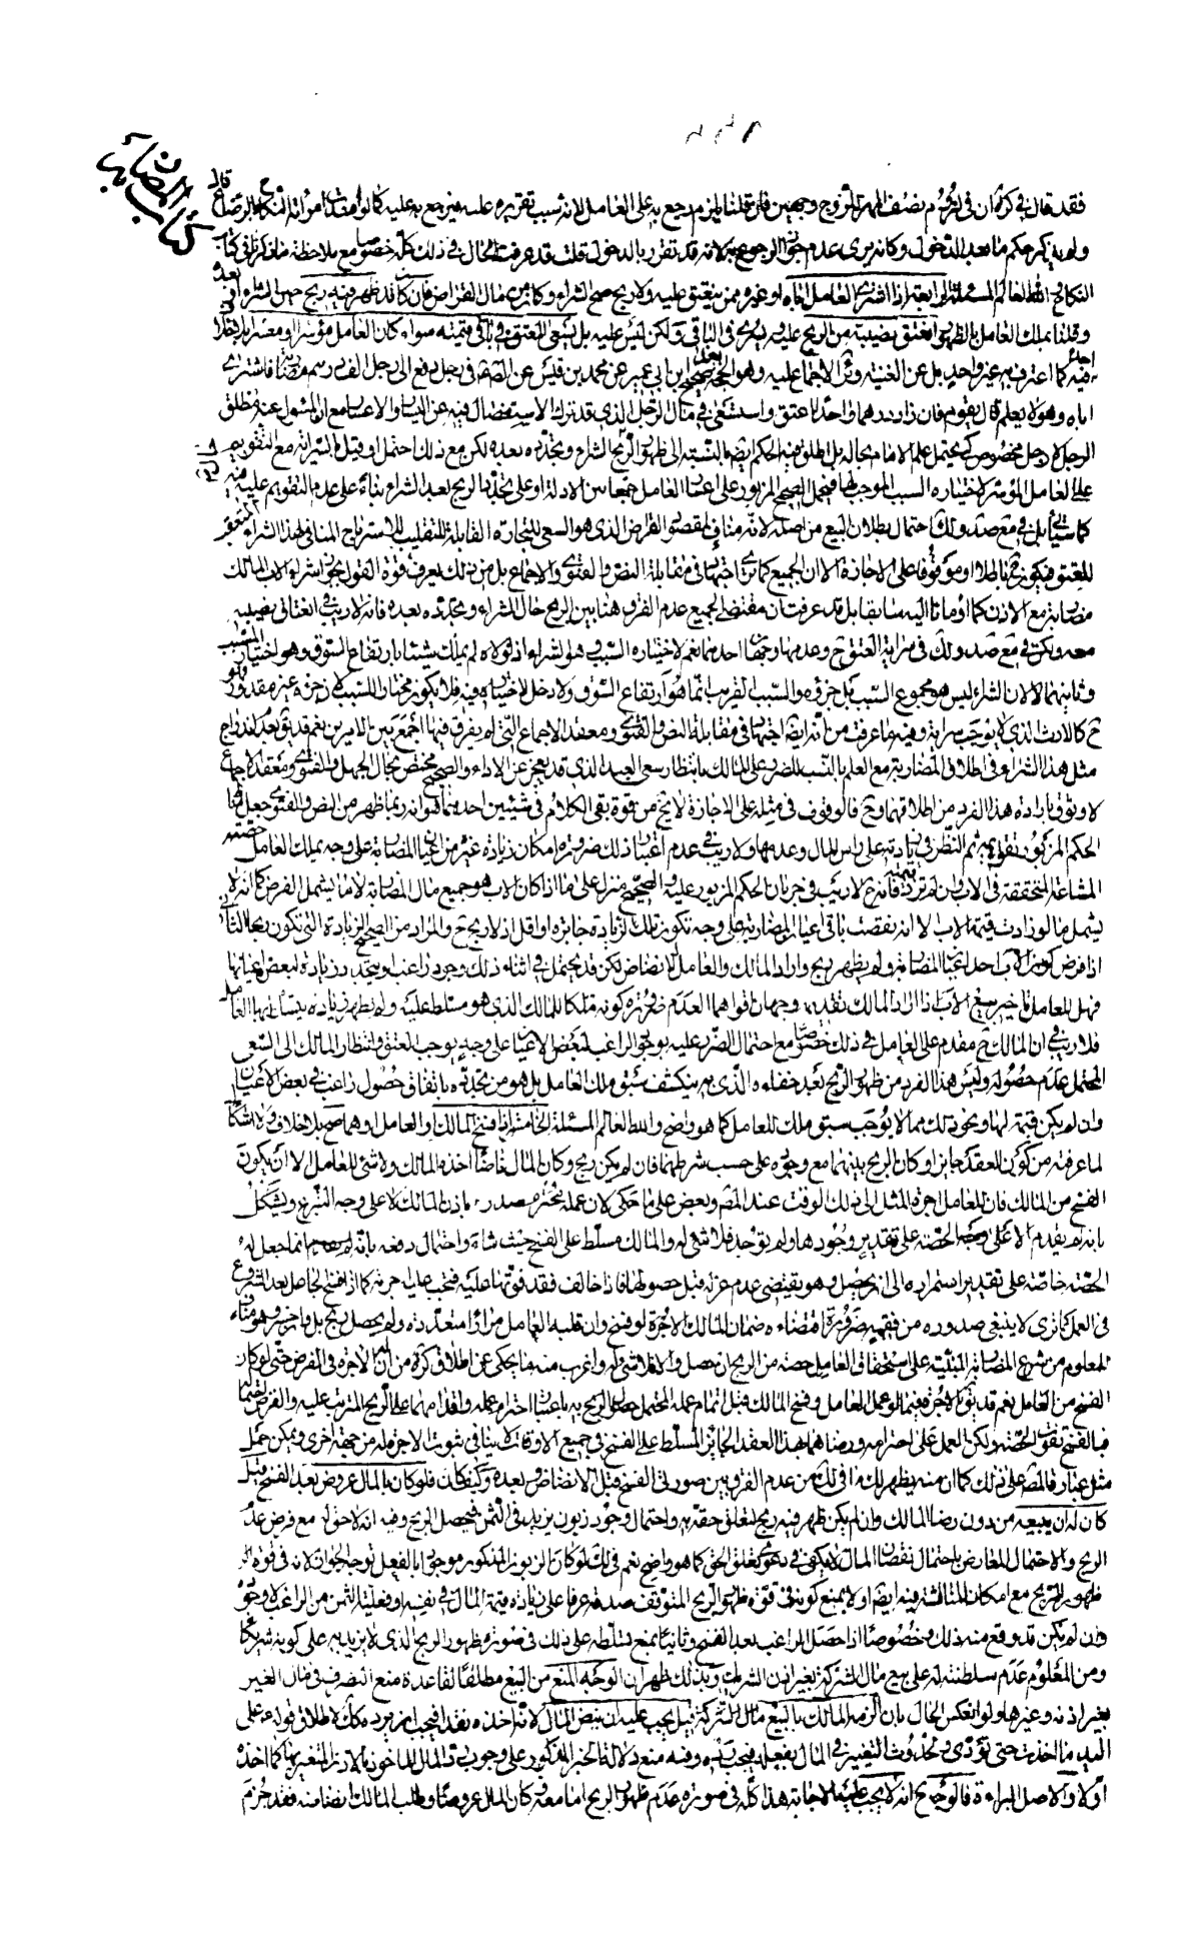 كتاب المضاربة
فقد قال في كرة ان في لزوم نصف المهر للزوج وجهين فان قلنا يلزم رجع به على العامل لانه سبب تقريره عليه فيرجع به عليه كما لو امرأته الرضاع قال
ولو يذكر حكم ما بعد الدخول وكانه يرى عدم جواز الرجوع لانه قد تقرر بالدخول قلت قد عرفت الحال في ذلك كله خصوصا مع ملاحظة ما ذكرناه في كتاب
النكاح والله العالم المسئلة الرابعة اذا اشترى العامل اباه او غيره ممن ينعتق عليه ولا ربح صح الشراء وكان من مال القراض فان كان قد ظهر فيه ربح حين الشراء او بعده
وقلنا بملك العامل بالظهور انعتق نصيبه من الربح عليه ولم يسر في الباقي ولكن ليس عليه بل يسعى المعتق في باقي قيمته سواء كان العامل موسرا او معسرا بلا خلاف
فيه كما اعترف به غير واحد بل عن الغنية وئر الاجماع عليه وهو الحجة بعد صحيح ابن ابي عمير عن محمد بن قيس عن الصادق في رجل دفع الى رجل الف درهم مضاربة فاشترى
اباه وهو لا يعلم قال يقوم فان زاد درهما واحدا اعتق واستسعى في مال الرجل الذي قد ترك الاستفصال فيه عن اليسار والاعسار مع ان المسئول عنه مطلق
الرجل لا رجل مخصوص كي يحتمل علم الامام بحاله بل اطلق فيه الحكم ايضا بالنسبة الى ظهور الربح بالشراء وتجدده بعده لكن مع ذلك احتمل او قيل بالسراية مع التقويم
على العامل الموسر لاختياره السبب الموجب لها فيحمل الصحيح المزبور على اعسار العامل جمعا بين الادلة او على تجدد الربح بعد الشراء بناء على عدم التقويم عليه فيه
كما سيأتي بل في مع صد ولك احتمال بطلان البيع من اصله لانه مناف لمقصود القراض الذي هو السعي للتجارة القابلة للتقليب للاسترباح المنافي لهذا الشراء المتعقب
للعتق فيكون ح باطلا او موقوفا على الاجازة الا ان الجميع كما ترى اجتهاد في مقابلة النص والفتوى والاجماع بل من ذلك يعرف قوة القول بجواز شراء الاب المالك
مضاربة مع الاذن كما اومأنا اليه سابقا بل قد عرفت ان مقتضى الجميع عدم الفرق هنا بين الربح حال الشراء وتجدده بعده فانه لا ريب في انعتاق نصيبه
معه ولكن في مع صد ولك في سراية العتق ح وعدمها وجهان احدهما نعم لاختياره السبب وهو الشراء اذ لولاه لم يملك شيئا بارتفاع السوق وهو اختيار المسبب
وثانيهما لا لان الشراء ليس هو مجموع السبب بل جزؤه والسبب القريب انما هو ارتفاع السوق ولا دخل لاختياره فيه فلا يكون مختارا للسبب لان جزءه غير مقدور وهو
ح كالارث الذي لا يوجب سراية وفيه ما عرفت من انه ايضا اجتهاد في مقابلة النص والفتوى ومعقد الاجماع التي لم يفرق فيها اجمع بين الامرين نعم قد يتوقف بعد اندراج
مثل هذا الشراء في اطلاق المضاربة مع العلم بالنسب للضرر على المالك بانتظار سعي العبد الذي قد يعجز عن الاداء والصحيح مختص بحال الجهل والفتوى ومعقد الاجماع
لا وثوق بارادة هذا الفرد من اطلاقهما وح فالوقوف في مثله على الاجازة لا يخ من قوة بقي الكلام في شيئين احدهما انه ربما ظهر من النص والفتوى جعل هنا
الحكم المزبور تقويمه ثم النظر في زيادته على راس المال وعدمها ولا ريب في عدم اعتبار ذلك ضرورة امكان زيادة غيره من اعيان المضاربة على وجه يملك العامل حصته
المشاعة المتحققة في الاب وان لم تزد قيمته فانه ح لا ريب في جريان الحكم المزبور عليه والصحيح منزل على ما اذا كان الاب هو جميع مال المضاربة لا ما يشمل الفرض كما انه لا
يشمل ما لو زادت قيمة الاب الا انه نقصت باقي اعيان المضاربة على وجه تكون تلك الزيادة جابرة او اقل اذ لا ربح ح والمراد من الصحيح الزيادة التي تكون ربحا الثاني
اذا فرض كون الاب احد اعيان المضاربة ولم يظهر ربح واراد المالك والعامل الانضاض لكن قد يحتمل في اثناء ذلك وجود راغب او يتجدد زيادة لبعض اعيانها
فهل للعامل تاخير بيع الاب اذا اراد المالك تقديمه وجهان اقواهما العدم ضرورة كونه ملكا للمالك الذي هو مسلط عليه ولم يظهر زيادة يستحق بها العامل
فلا ريب في ان المالك ح مقدم على العامل في ذلك خصوصا مع احتمال الضرر عليه بوجود الراغب لبعض الاعيان على وجه يوجب العتق وانتظار المالك الى السعي
المحتمل عدم حصوله وليس هذا الفرد من ظهور الربح بعد خفاءه والذي به ينكشف سبق ملك العامل بل هو من تجدده باتفاق حصول راغب في بعض الاعيان
وان لم يكن قيمة لها ونحو ذلك مما لا يوجب سبق ملك للعامل كما هو واضح والله العالم المسئلة الخامسة اذا فسخ المالك او العامل او هما صح بلا خلاف ولا اشكال
لما عرفته من كون العقد جايزا وكان الربح بينهما مع وجوده على حسب شرطهما فان لم يكن ربح وكان المال ناضا اخذه المالك ولا شئ للعامل الا ان يكون
الفسخ من المالك فان للعامل اجرة المثل الى ذلك الوقت عند المصنف وبعض على ما حكي لان عمله محترم صدر باذن المالك لا على وجه التبرع ويشكل
بانه لم يقدم الا على الحصة على تقدير وجودها ولم توجد فلا شئ له والمالك مسلط على الفسخ حيث شاء واحتمال دفعه بانه انما جعل له
الحصة خاصة على تقدير استمراره الى ان يحصل وهو يقتضي عدم عزله قبل حصولها فاذا خالف فقد فوتها عليه فيجب عليه اجرته كما اذا فسخ الجاعل بعد الشروع
في العمل كما ترى لا ينبغي صدوره من فقيه ضرورة اقتضاءه ضمان المالك الاجرة لو فسخ وان قلبه العامل مرارا متعددة ولم يحصل ربح بل واخر وهو مناف
للمعلوم من شرع المضاربة المبنية على استحقاق العامل حصته من الربح ان حصل والا فلا شئ له واغرب منه ما حكي عن اطلاق كرة من ان له الاجرة في الفرض حتى لو كان
الفسخ من العامل نعم قد يقوى الاجرة فيما لو عمل العامل وفسخ المالك قبل اتمام عمله المحتمل حصول الربح به باعتبار احترام عمله واقدامهما على الربح المترتب عليه والفرض انتهائه
فبالفسخ تفوت الحصة ولكن العمل على احترامه ورضاهما بهذا العقد الجايز المسلط على الفسخ في جميع الاوقات لا ينافي ثبوت الاجرة له من جهة اخرى ويمكن حمل
مثل عبارة المصنف على ذلك كما ان منه يظهر لك ما في لك من عدم الفرق بين صورتي الفسخ قبل الانضاض وبعده وكيف كان فلو كان بالمال عروض بعد الفسخ قيل
كان له ان يبيعه من دون رضا المالك وان لم يكن ظهر فيه ربح لتعلق حقه به واحتمال وجود زبون يزيد في الثمن فيحصل الربح وفيه انه لا حق له مع فرض عدم
الربح والاحتمال المعارض باحتمال نقصان المال لا يكفي في دعوى تعلق الحق كما هو واضح نعم في لك لو كان الزبون المذكور موجودا بالفعل توجه الجواز لانه في قوة
ظهور الربح مع امكان المناقشة فيه ايضا اولا بمنع كونه في قوة ظهور الربح المتوقف صدقه عرفا على زيادة قيمة المال في نفسه او فعلية الثمن من الراغب لا وجوده
وان لم يكن قد وقع منه ذلك وخصوصا اذا حصل الراغب بعد الفسخ وثانيا بمنع تسلطه على ذلك في صورة ظهور الربح الذي لا يزيد به على كونه شريكا
ومن المعلوم عدم سلطنته له على بيع مال الشركة بغير اذن الشريك وبذلك ظهر ان الوجه المنع من البيع مطلقا لقاعدة منع التصرف في مال الغير
بغير اذنه وغيرها ولو انعكس الحال بان الزمه المالك بالبيع مال الشركة قيل يجب عليه ان ينض المال لانه اخذه نقدا فيجب ان يرده كك لاطلاق قوله على
اليد ما اخذت حتى تؤدي ولحدوث التغيير في المال بفعله فيجب رده وفيه منع دلالة الخبر المذكور على وجوب رد المال الماخوذ بالاذن المتغير بها كما اخذه
اولا والاصل البراءة فالوجه ح انه لا يجب عليه الاجابة هذا كله في صورة عدم ظهور الربح اما معه فان كان المال عروضا وطلب المالك انضاضه فقد جزم